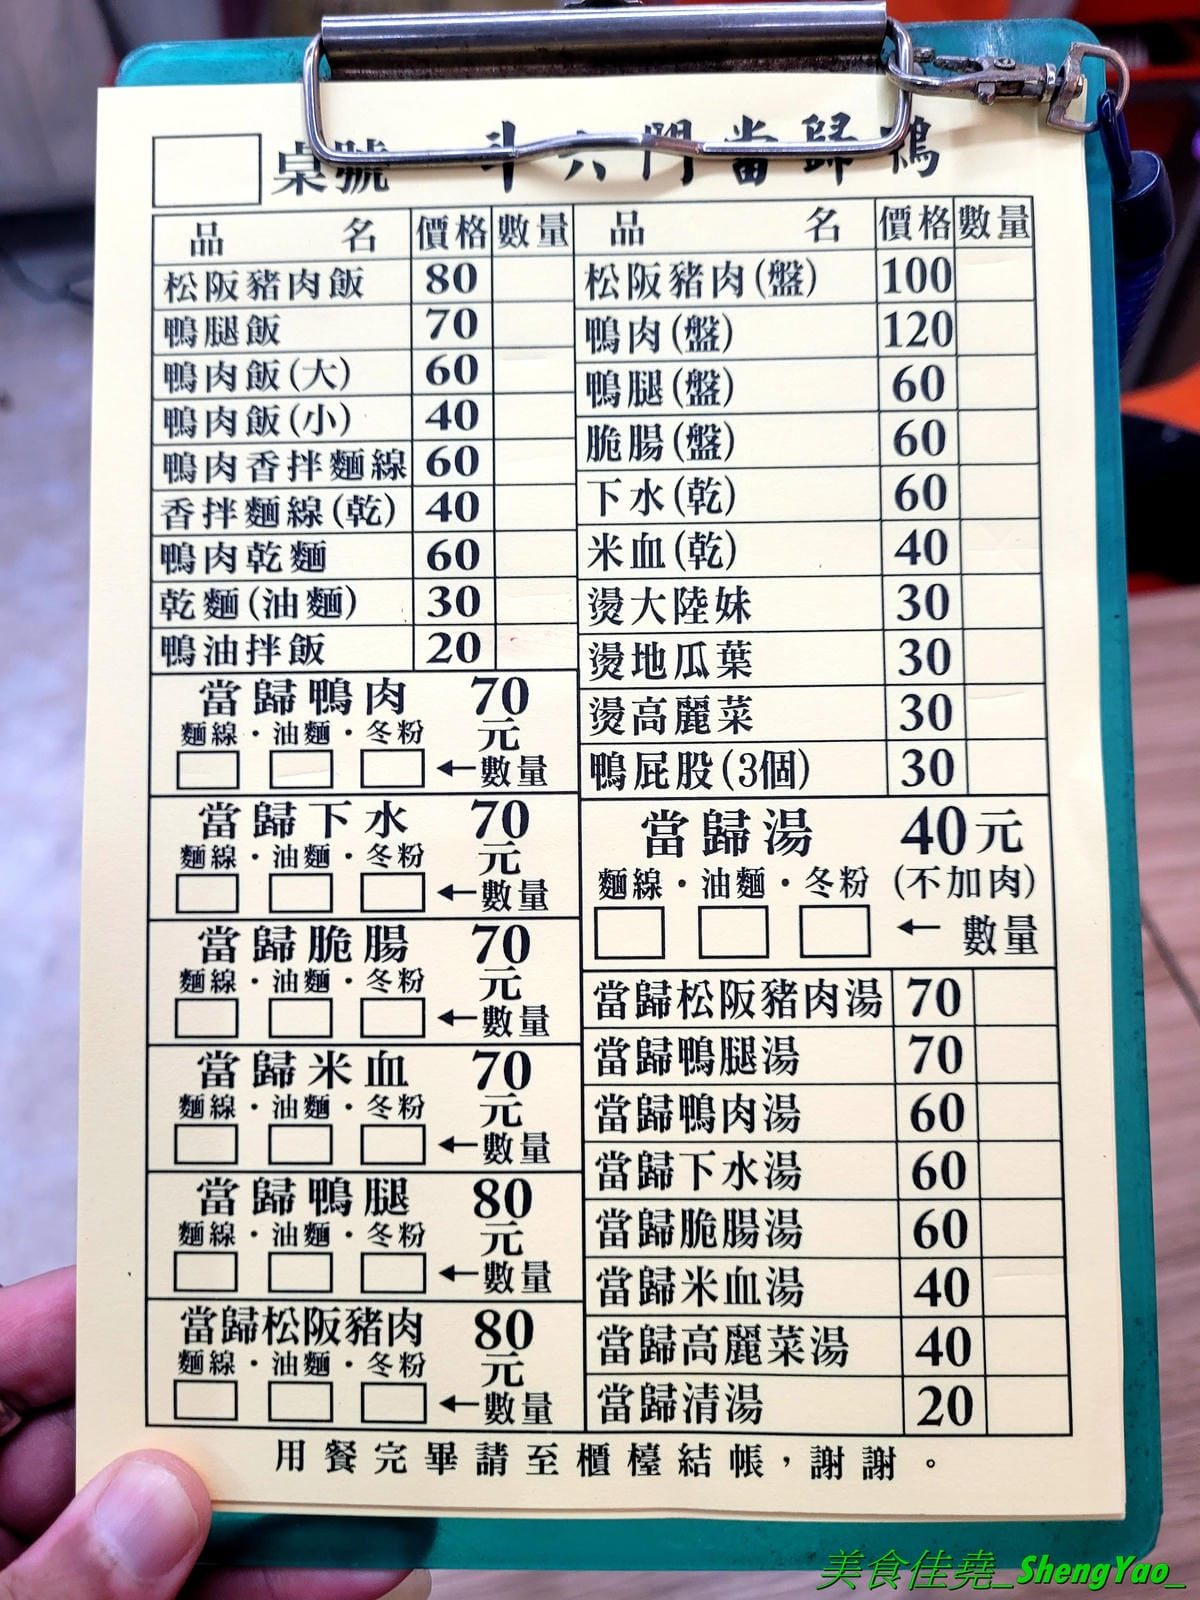 桌號 斗六門當歸鴨
品名 價格 數量
松阪豬肉飯 80
鴨腿飯 70
鴨肉飯(大) 60
鴨肉飯(小) 40
鴨肉香拌麵線 60
香拌麵線(乾) 40
鴨肉乾麵 60
乾麵(油麵) 30
鴨油拌飯 20
當歸鴨肉 70元
麵線・油麵・冬粉
←數量
當歸下水 70元
麵線・油麵・冬粉
←數量
當歸脆腸 70元
麵線・油麵・冬粉
←數量
當歸米血 70元
麵線・油麵・冬粉
←數量
當歸鴨腿 80元
麵線・油麵・冬粉
←數量
當歸松阪豬肉 80元
麵線・油麵・冬粉
←數量
品名 價格 數量
松阪豬肉(盤) 100
鴨肉(盤) 120
鴨腿(盤) 60
脆腸(盤) 60
下水(乾) 60
米血(乾) 40
燙大陸妹 30
燙地瓜葉 30
燙高麗菜 30
鴨屁股(3個) 30
當歸湯 40元
麵線・油麵・冬粉 (不加肉)
← 數量
當歸松阪豬肉湯 70
當歸鴨腿湯 70
當歸鴨肉湯 60
當歸下水湯 60
當歸脆腸湯 60
當歸米血湯 40
當歸高麗菜湯 40
當歸清湯 20
用餐完畢請至櫃檯結帳，謝謝。
美食佳堯_ShengYao_